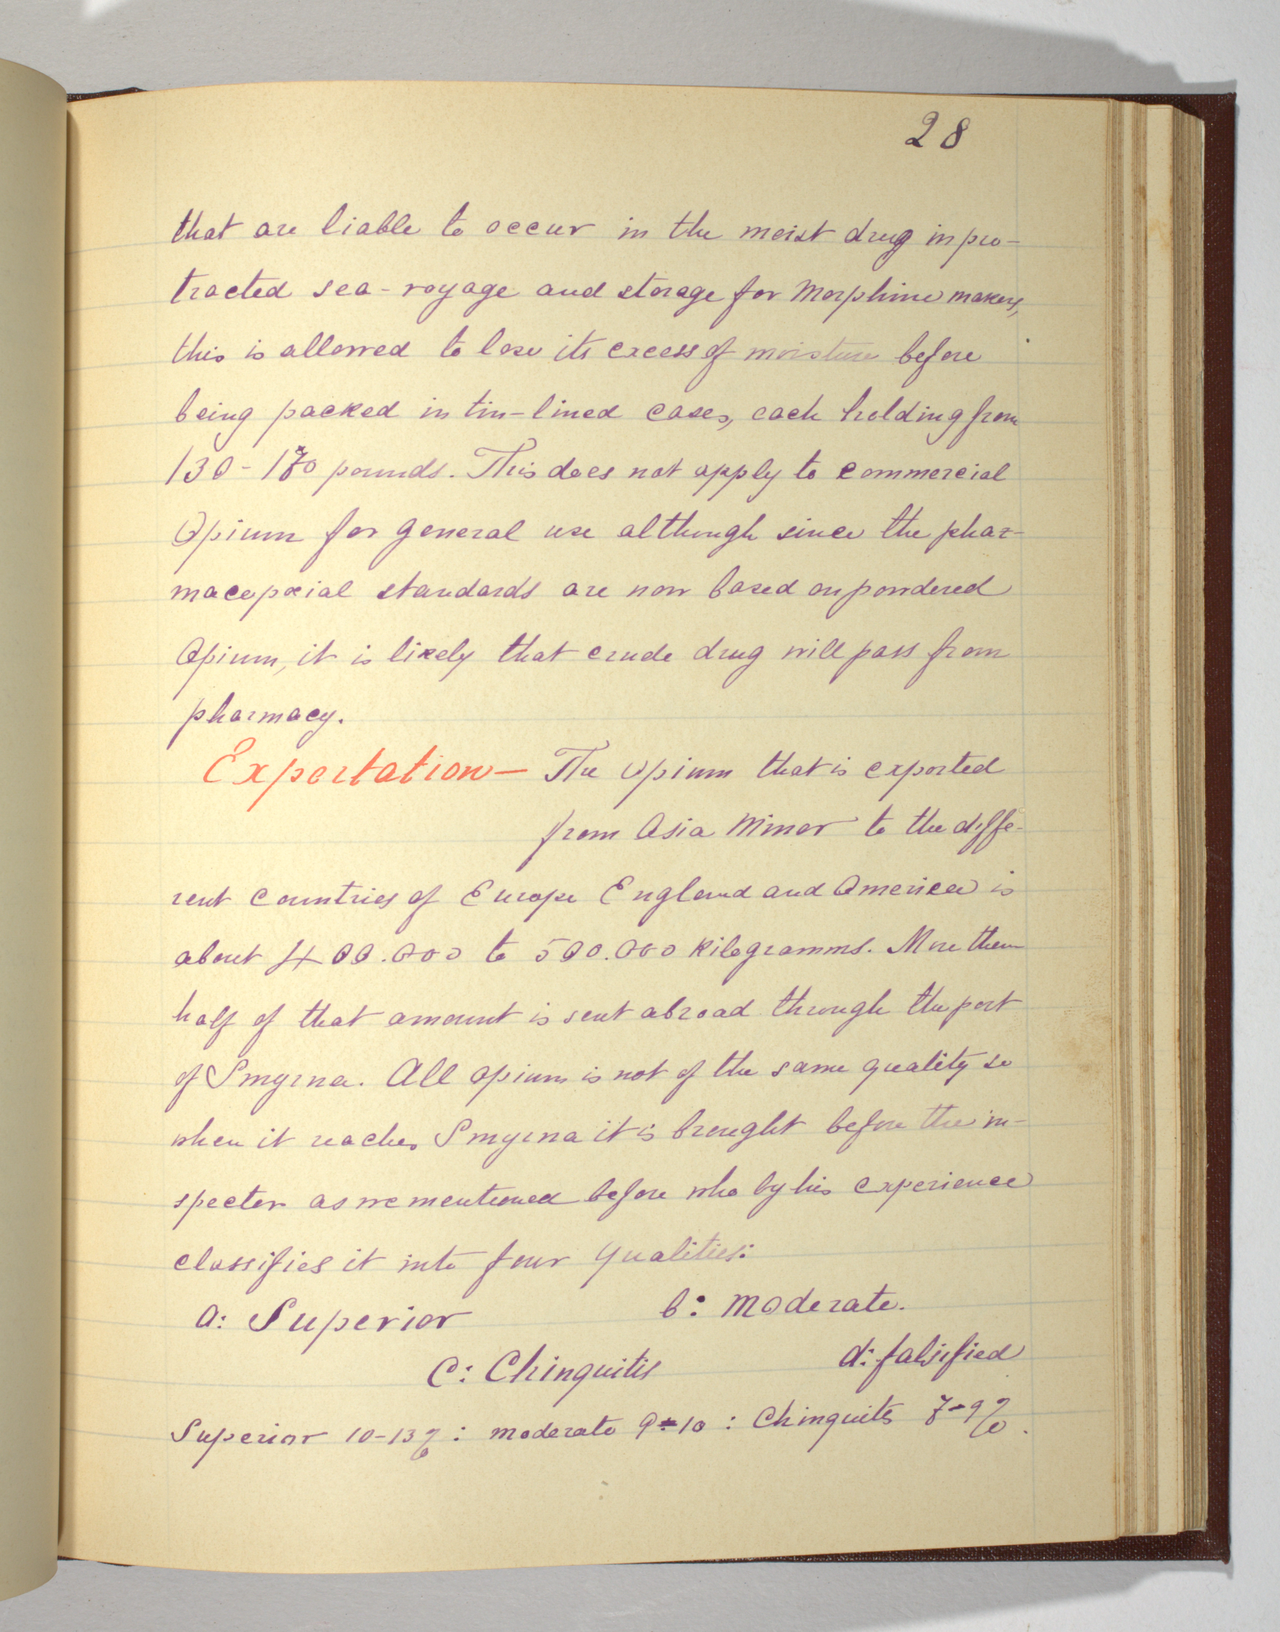 28
that are liable to occur in the moist drug in pro-
tracted sea-voyage and storage for Morphine makers,
this is allowed to lose its excess of moisture before
being packed in tin-lined cases, each holding from
130-170 pounds. This does not apply to commercial
Opium for general use although since the phar-
macopœial standards are now based on powdered
Opium, it is likely that crude drug will pass from
pharmacy.
Exportation— The Opium that is exported
from Asia Minor to the diffe-
rent countries of Europe England and America is
about 400.000 to 500.000 kilogramms. More then
half of that amount is sent abroad through the port
of Smyrna. All opium is not of the same quality so
when it reaches Smyrna it is brought before the in-
specter as we mentioned before who by his experience
classifies it into four qualities:
a: Superior b: Moderate.
c: Chinquitis d: falsified
Superior 10-13%: moderate 9-10: Chinquits 7-9%.